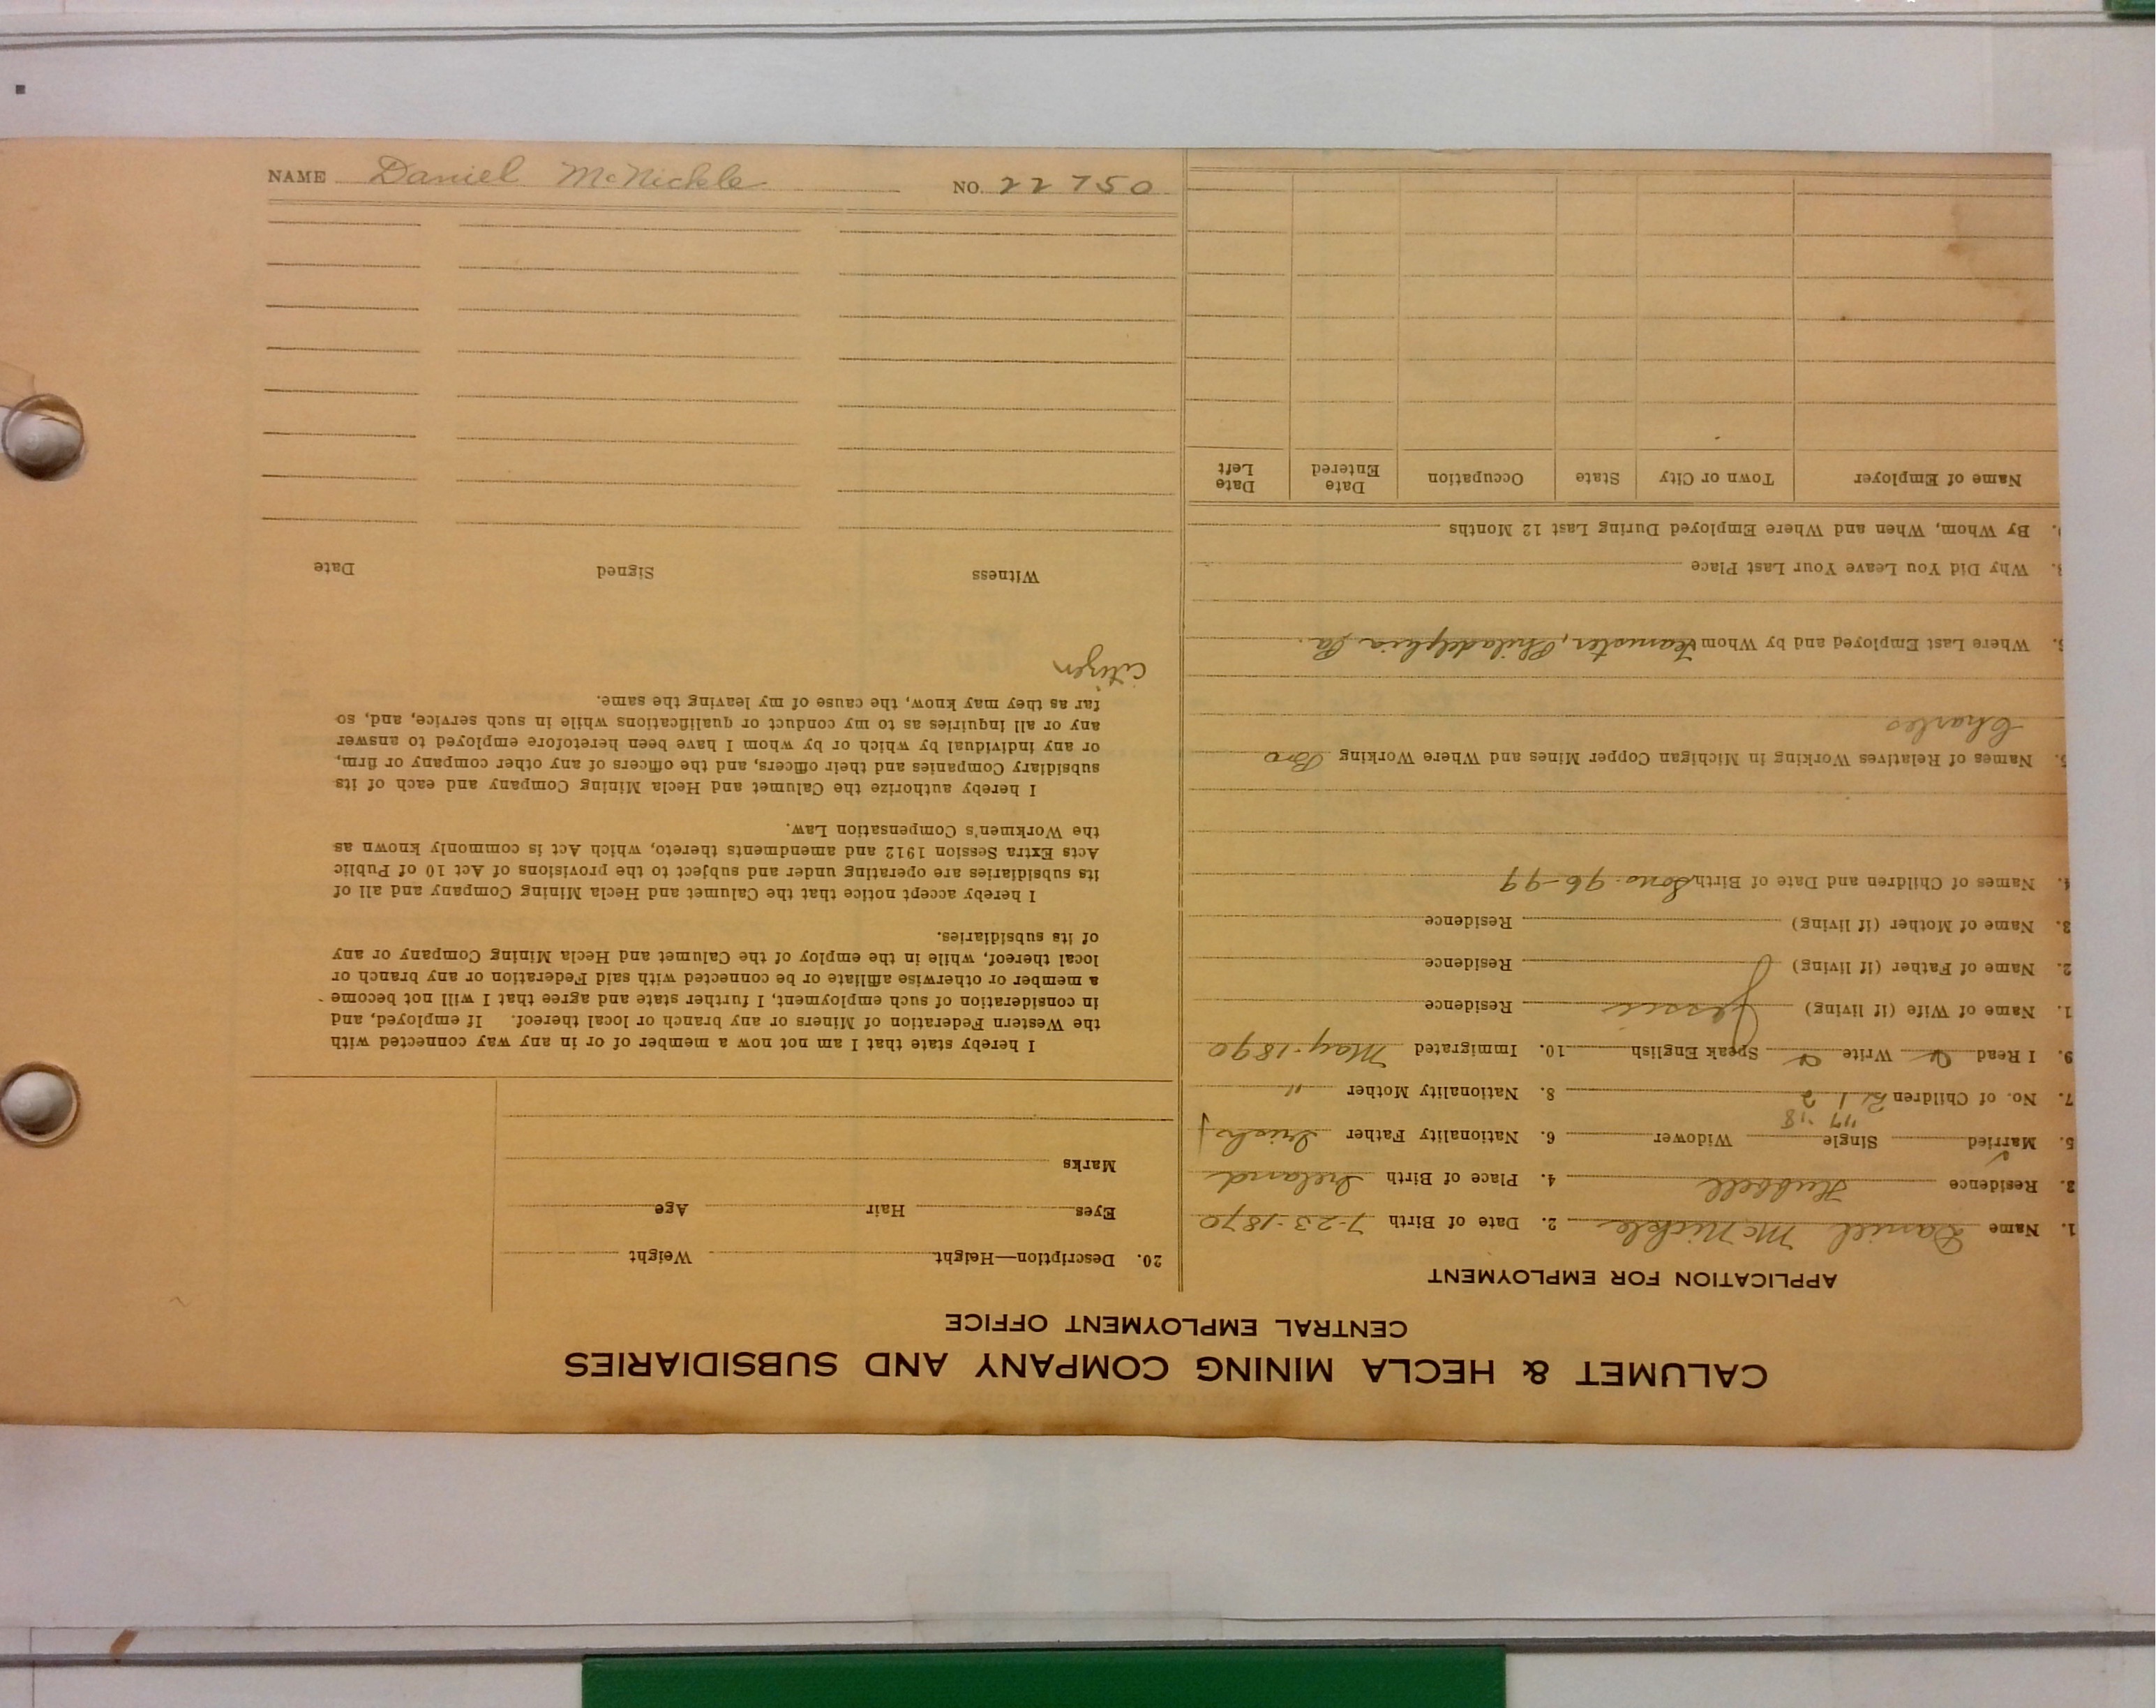 CALUMET & HECLA MINING COMPANY AND SUBSIDIARIES
CENTRAL EMPLOYMENT OFFICE
APPLICATION FOR EMPLOYMENT
1. Name Daniel McNickle 2. Date of Birth 7-23-1870
3. Residence Hubbell 4. Place of Birth Ireland
5. Married Single Widower 6. Nationality Father Irish
"17 '18
7. No. of Children 2 8. Nationality Mother "
9. I Read Write Speak English 10. Immigrated May-1890
1. Name of Wife (if living) Jessie Residence
2. Name of Father (if living) Residence
3. Name of Mother (if living) Residence
4. Names of Children and Date of Birth Sons. 96-99
5. Names of Relatives Working in Michigan Copper Mines and Where Working Bro
Charles
Where Last Employed and by Whom Teamster, Philadelphia Pa.
Why Did You Leave Your Last Place
By Whom, When and Where Employed During Last 12 Months
Name of Employer Town or City State Occupation Date Entered Date Left
20. Description—Height Weight
Eyes Hair Age
Marks
I hereby state that I am not now a member of or in any way connected with
the Western Federation of Miners or any branch or local thereof. If employed, and
in consideration of such employment, I further state and agree that I will not become
a member or otherwise affiliate or be connected with said Federation or any branch or
local thereof, while in the employ of the Calumet and Hecla Mining Company or any
of its subsidiaries.
I hereby accept notice that the Calumet and Hecla Mining Company and all of
its subsidiaries are operating under and subject to the provisions of Act 10 of Public
Acts Extra Session 1912 and amendments thereto, which Act is commonly known as
the Workmen's Compensation Law.
I hereby authorize the Calumet and Hecla Mining Company and each of its
subsidiary Companies and their officers, and the officers of any other company or firm,
or any individual by which or by whom I have been heretofore employed to answer
any or all inquiries as to my conduct or qualifications while in such service, and, so
far as they may know, the cause of my leaving the same.
Citizen
Witness Signed Date
NAME Daniel McNickle NO. 22750